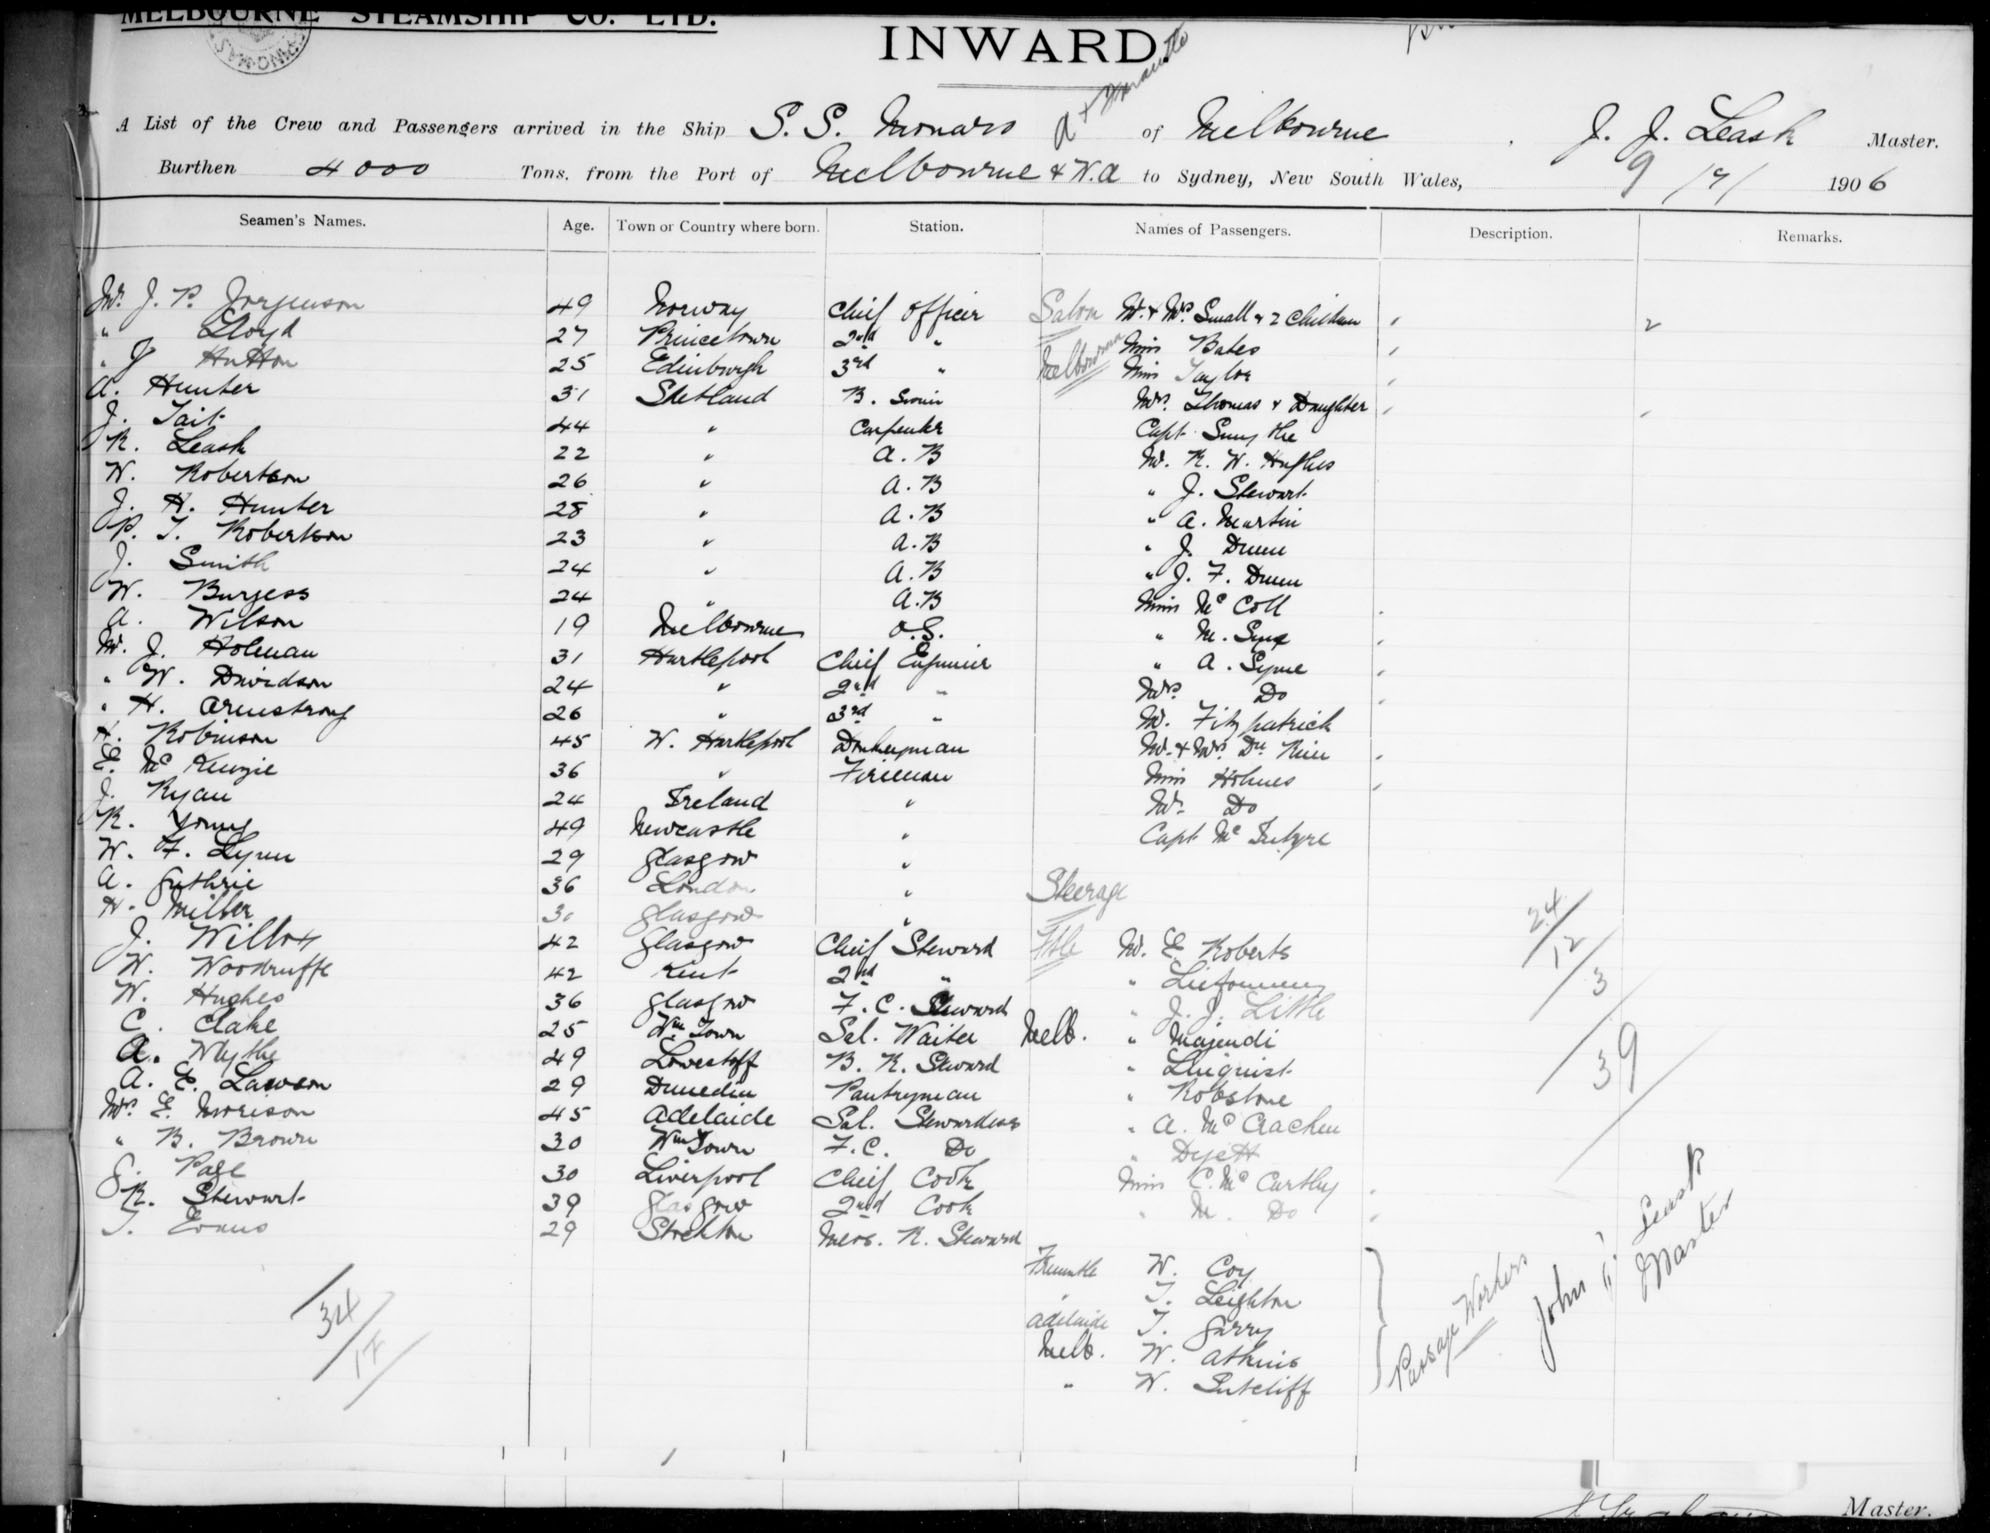 MELBOURNE STEAMSHIP CO. LTD.
INWARD
A List of the Crew and Passengers arrived in the Ship S. S. Monaro of Melbourne J. J. Leask Master.
Burthen 4000 Tons, from the Port of Melbourne & W.A to Sydney, New South Wales, 9/7/ 1906
Seamen's Names. Age. Town or Country where born. Station. Names of Passengers. Description. Remarks.
Mr. J. P. Jorgenson 49 Norway Chief Officer Saloon Mr. & Mrs. Small & 2 Children
" Lloyd 27 Princetown 2nd " Melbourne Miss Bates
" J Hutton 25 Edinburgh 3rd " Miss Taylor
A. Hunter 31 Shetland B. Swain Mrs. Thomas & Daughter
J. Tait 44 " Carpenter Capt. Smythe
R. Leask 22 " A.B Mr. R. W. Hughes
W. Robertson 26 " A.B " J. Stewart
J. H. Hunter 28 " A.B " A. Martin
P. T. Robertson 23 " A.B " J. Dunn
J. Smith 24 " A.B " J. F. Dunn
W. Burgess 24 " A.B Miss McColl
A. Wilson 19 Melbourne O.S. " M. Syme
Mr. J. Holman 31 Hartlepool Chief Engineer " A. Syme
" W. Davidson 24 " 2nd " Mrs. Do
" H. Armstrong 26 " 3rd " Mr. Fitzpatrick
H. Robinson 45 W. Hartlepool Donkeyman Mr. & Mrs.
E. McKenzie 36 " Fireman Miss Holmes
J. Ryan 24 Ireland " Mr. Do
R. Young 49 Newcastle " Capt McIntyre
W. F. Lynn 29 Glasgow "
A. Guthrie 36 London " Steerage
H. Miller 30 Glasgow "
J. Willox 42 Glasgow Chief Steward Ftle Mr. E. Roberts
W. Woodruffe 42 Kent 2nd "
W. Hughes 36 Glasgow F. C. Steward " J. J. Little
C. Clake 25 Wm Town Sal. Waiter Melb. " Majendi
A. Wlythe 49 Lowestoff B. R. Steward "
A. E. Lawson 29 Dunedin Pantryman " Robstone
Mrs E. Morison 45 Adelaide Sal. Stewardess " A. McCrachen
" B. Brown 30 Wm Town F.C. Do " Dyett
G. Page 30 Liverpool Chief Cook Miss C. McCarthy
R. Stewart 39 Glasgow 2nd Cook " M. Do
T. Evans 29 Stockton Mess. R. Steward
Fremantle W. Coy
" T. Leighton
Adelaide T. Garry
Melb. W. Atkins
" W. Sutcliff
Passage Workers
John J. Leask
Master
24
12
3
39
34
17
Master.